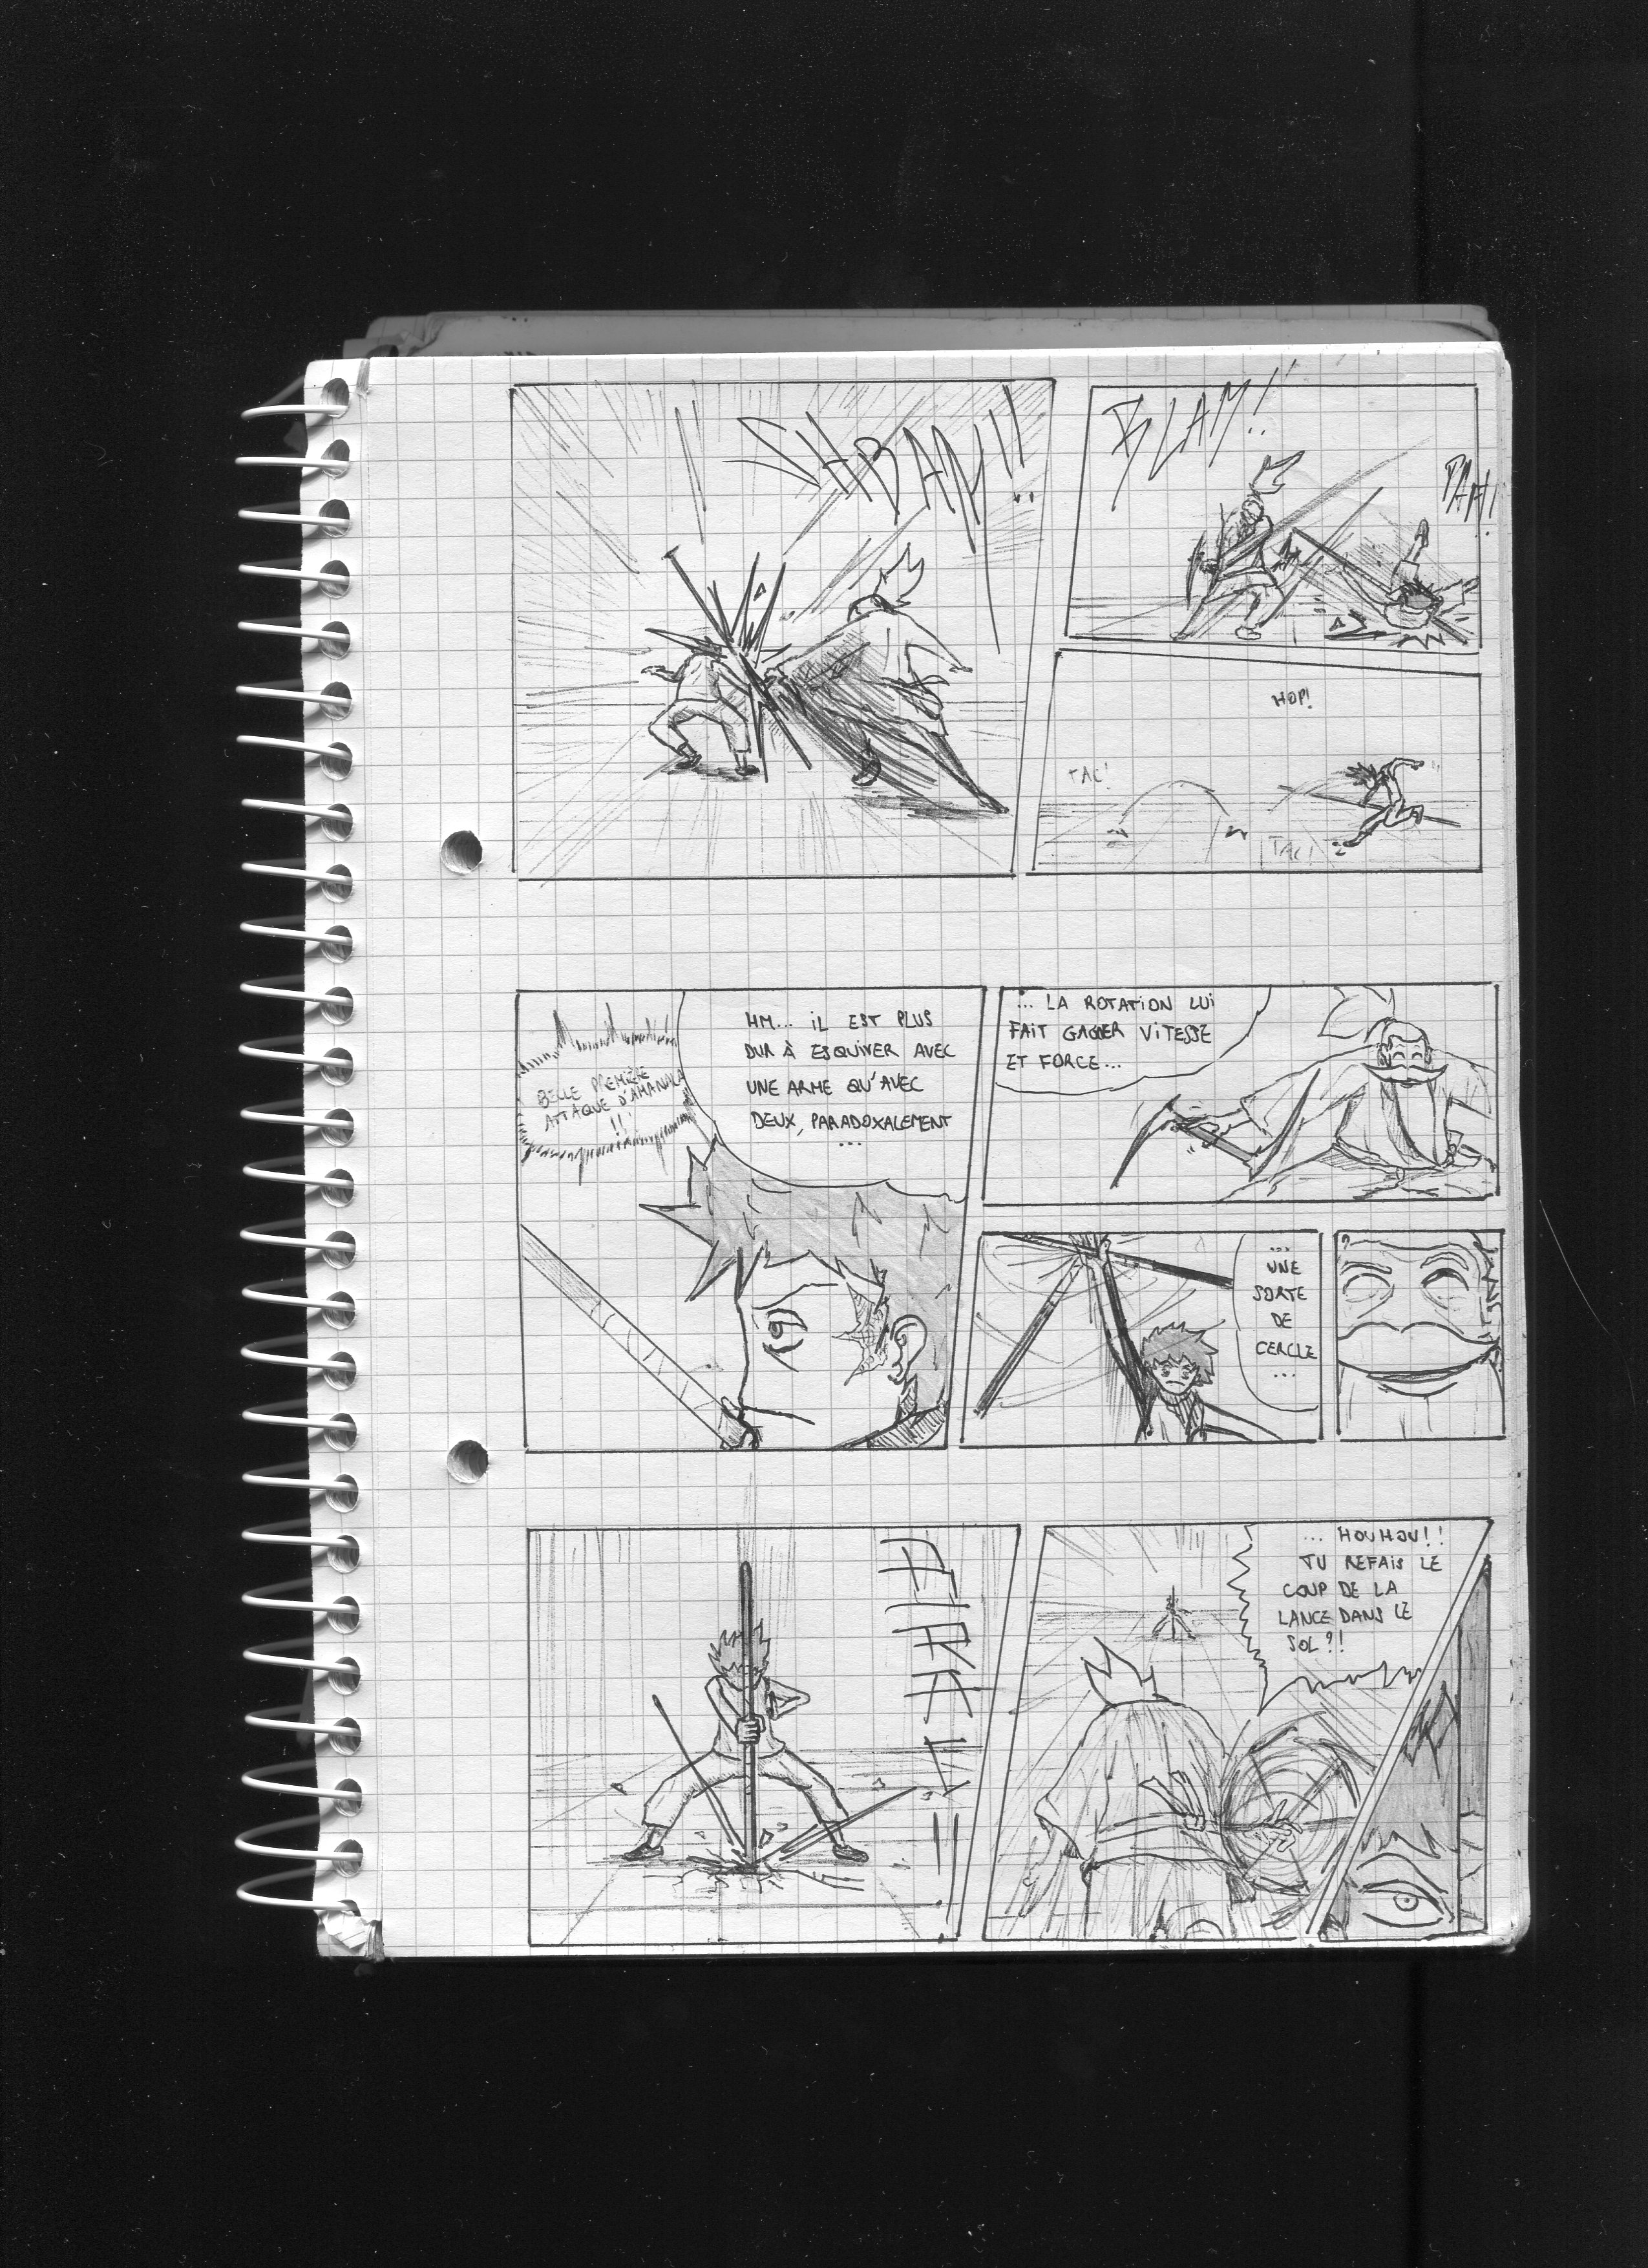 SHBAM!!
BLAM!!
PAH!
HOP!
TAC!
TAC!
BELLE PREMIÈRE
ATTAQUE D'AMANDLA
!!
HM... iL EST PLUS
DUR À ESQUIVER AVEC
UNE ARME QU'AVEC
DEUX, PARADOXALEMENT
...
... LA ROTATiON LUi
FAiT GAGNER ViTESSE
ET FORCE...
...
UNE
SORTE
DE
CERCLE
...
?
... HOUHOU!!
TU REFAiS LE
COUP DE LA
LANCE DANS LE
SOL?!